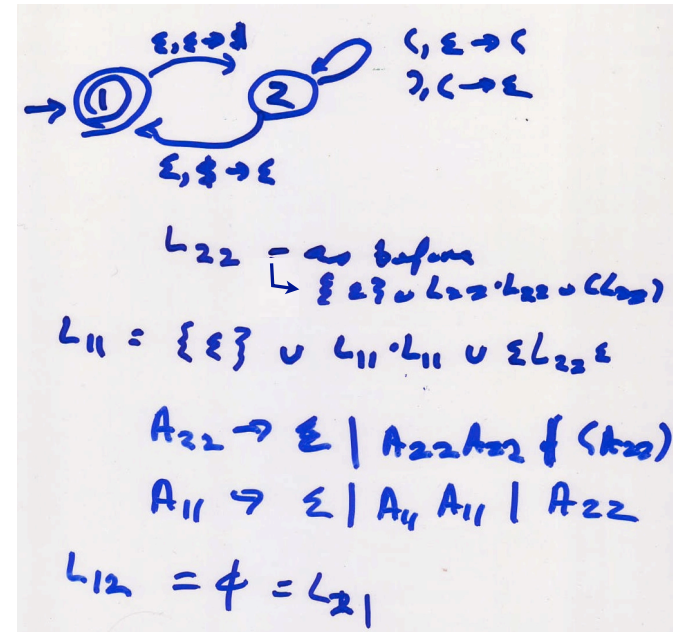 ε, ε → $
(, ε → (
), ( → ε
1
2
ε, $ → ε
L₂₂ = as before
{ε} ∪ L₂₂·L₂₂ ∪ (L₂₂)
L₁₁ = {ε} ∪ L₁₁·L₁₁ ∪ εL₂₂ε
A₂₂ → ε | A₂₂A₂₂ | (A₂₂)
A₁₁ → ε | A₁₁ A₁₁ | A₂₂
L₁₂ = ϕ = L₂₁